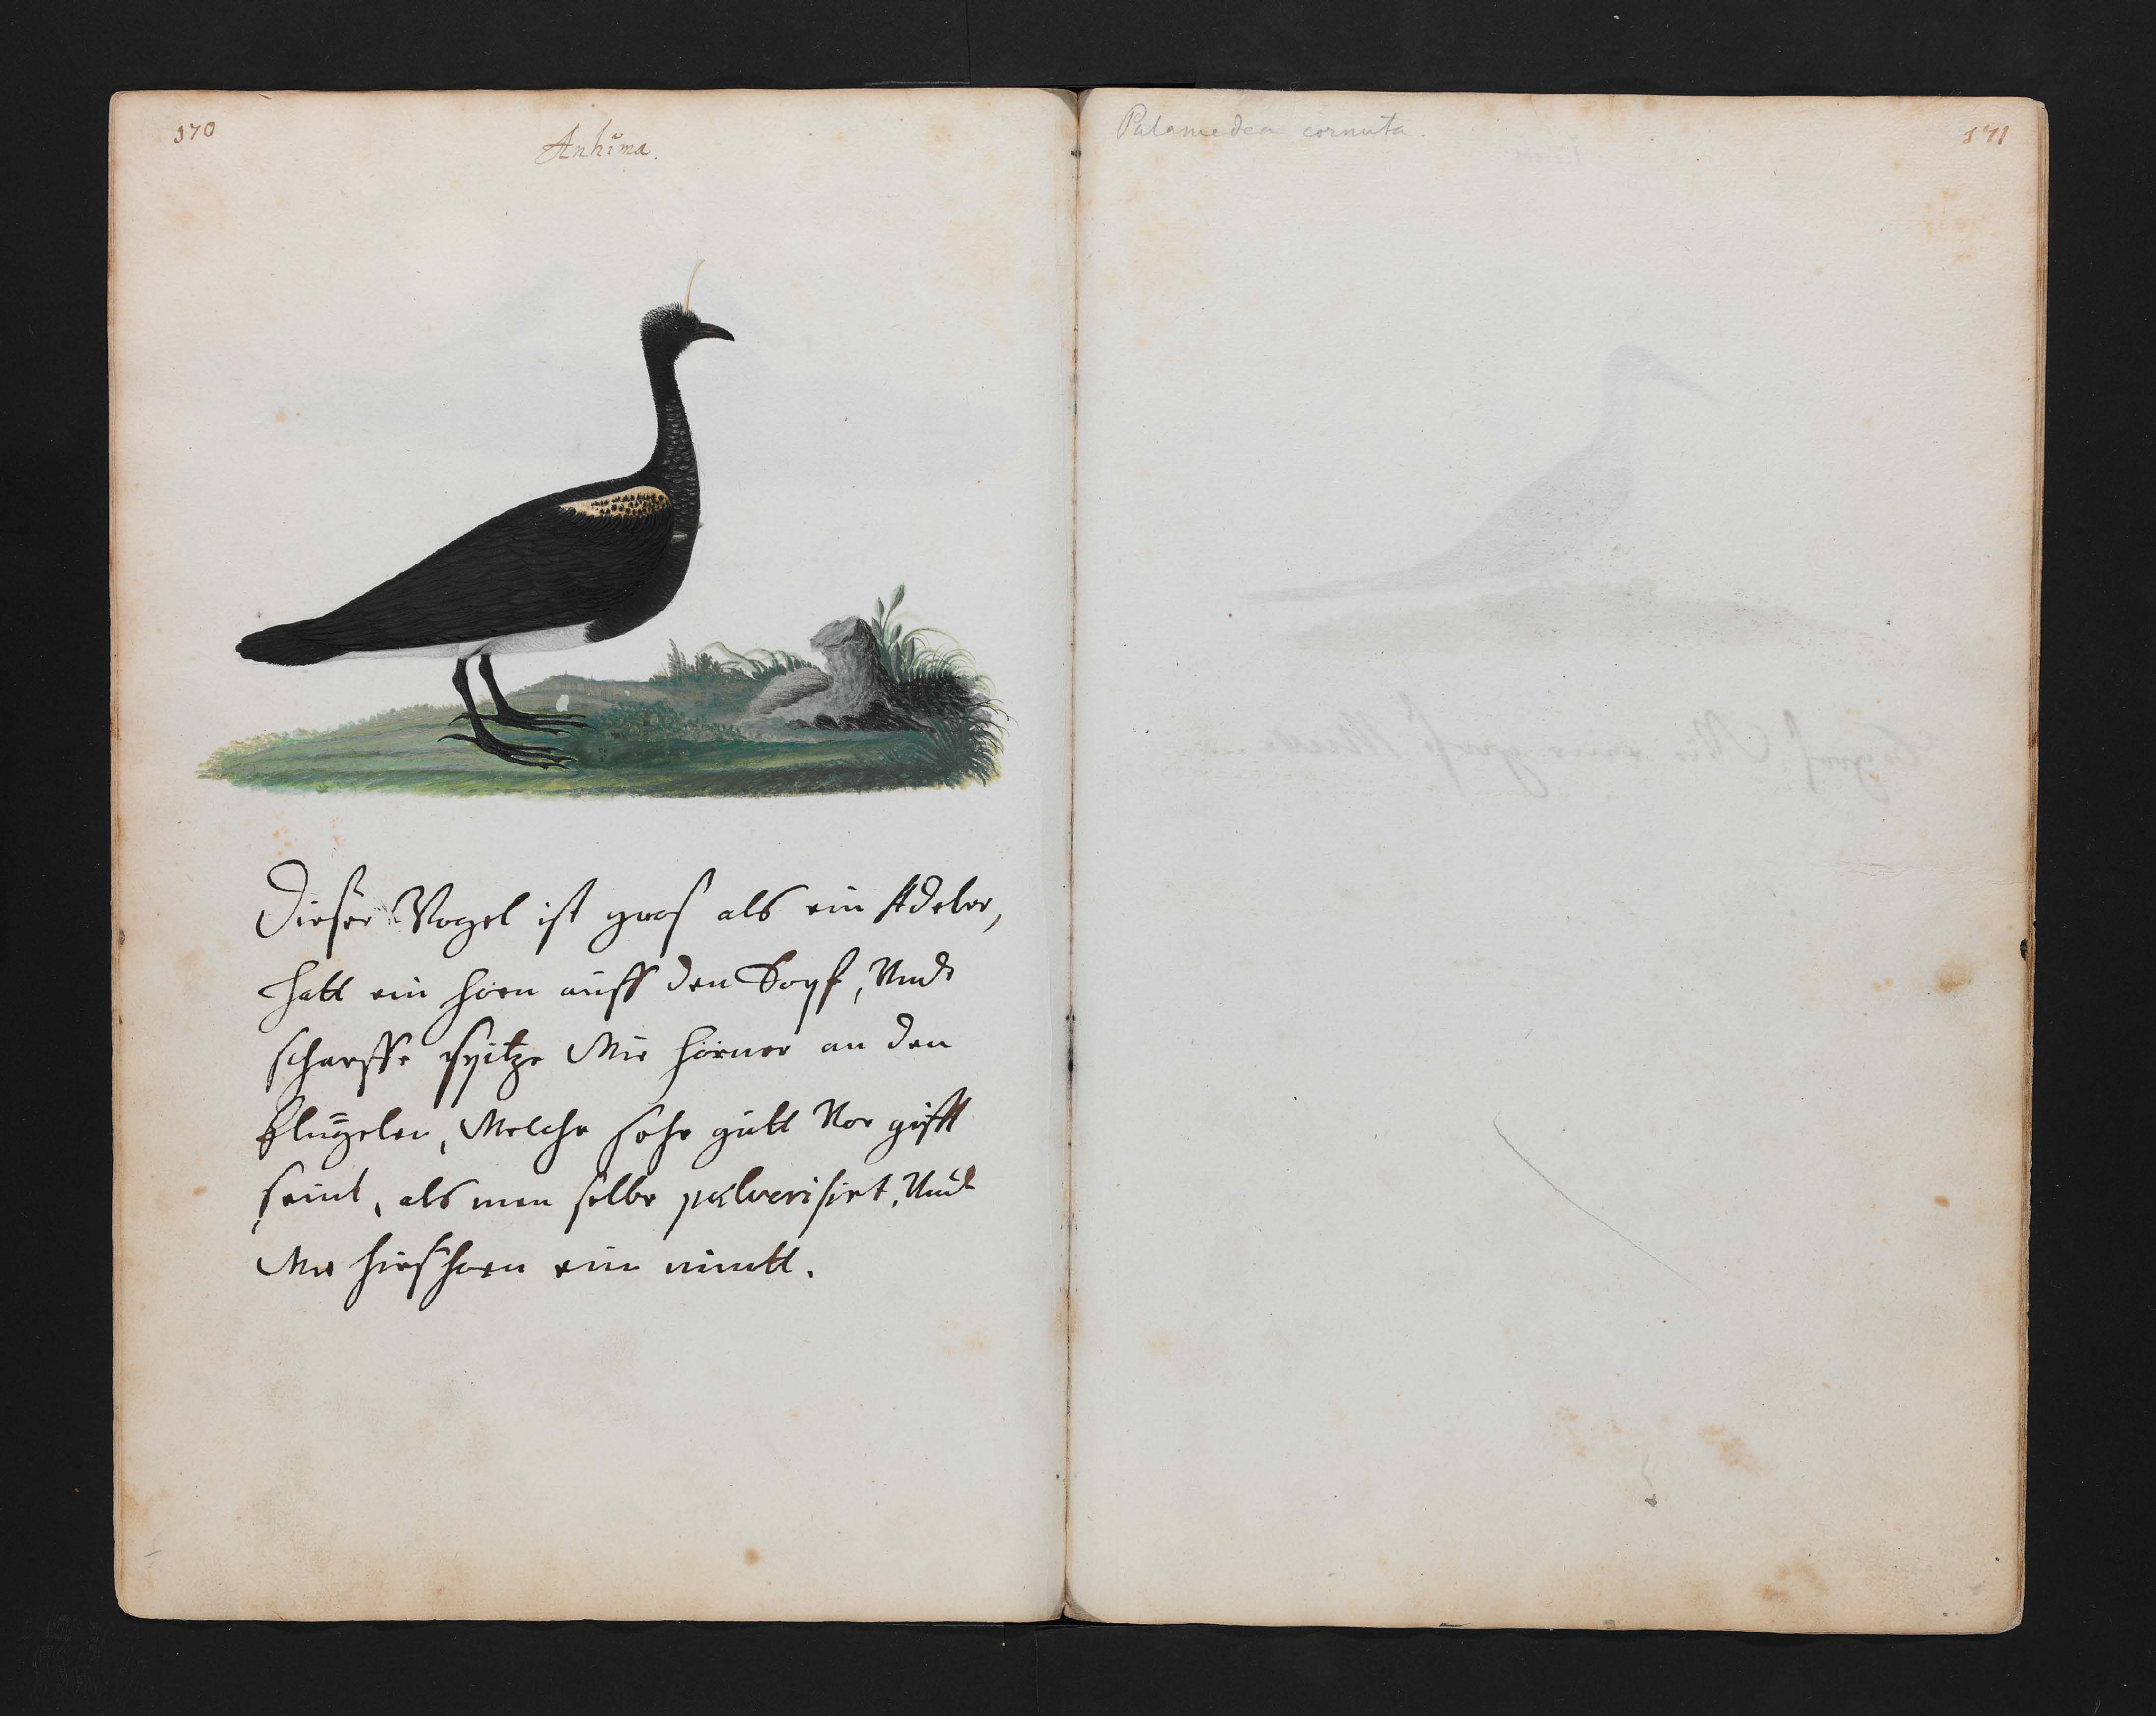 370
Anhima.
Dieser Vogel ist gros als ein Adeler,
hatt ein horn auff den Kopf, Undt
scharffe spitze Wie hörner an den
flugelen, Welche sehr gutt Vor gifft
seint, als man selbe pulverisirt, Undt
Wie hirshorn ein nimtt.
Palamedea cornuta.
371